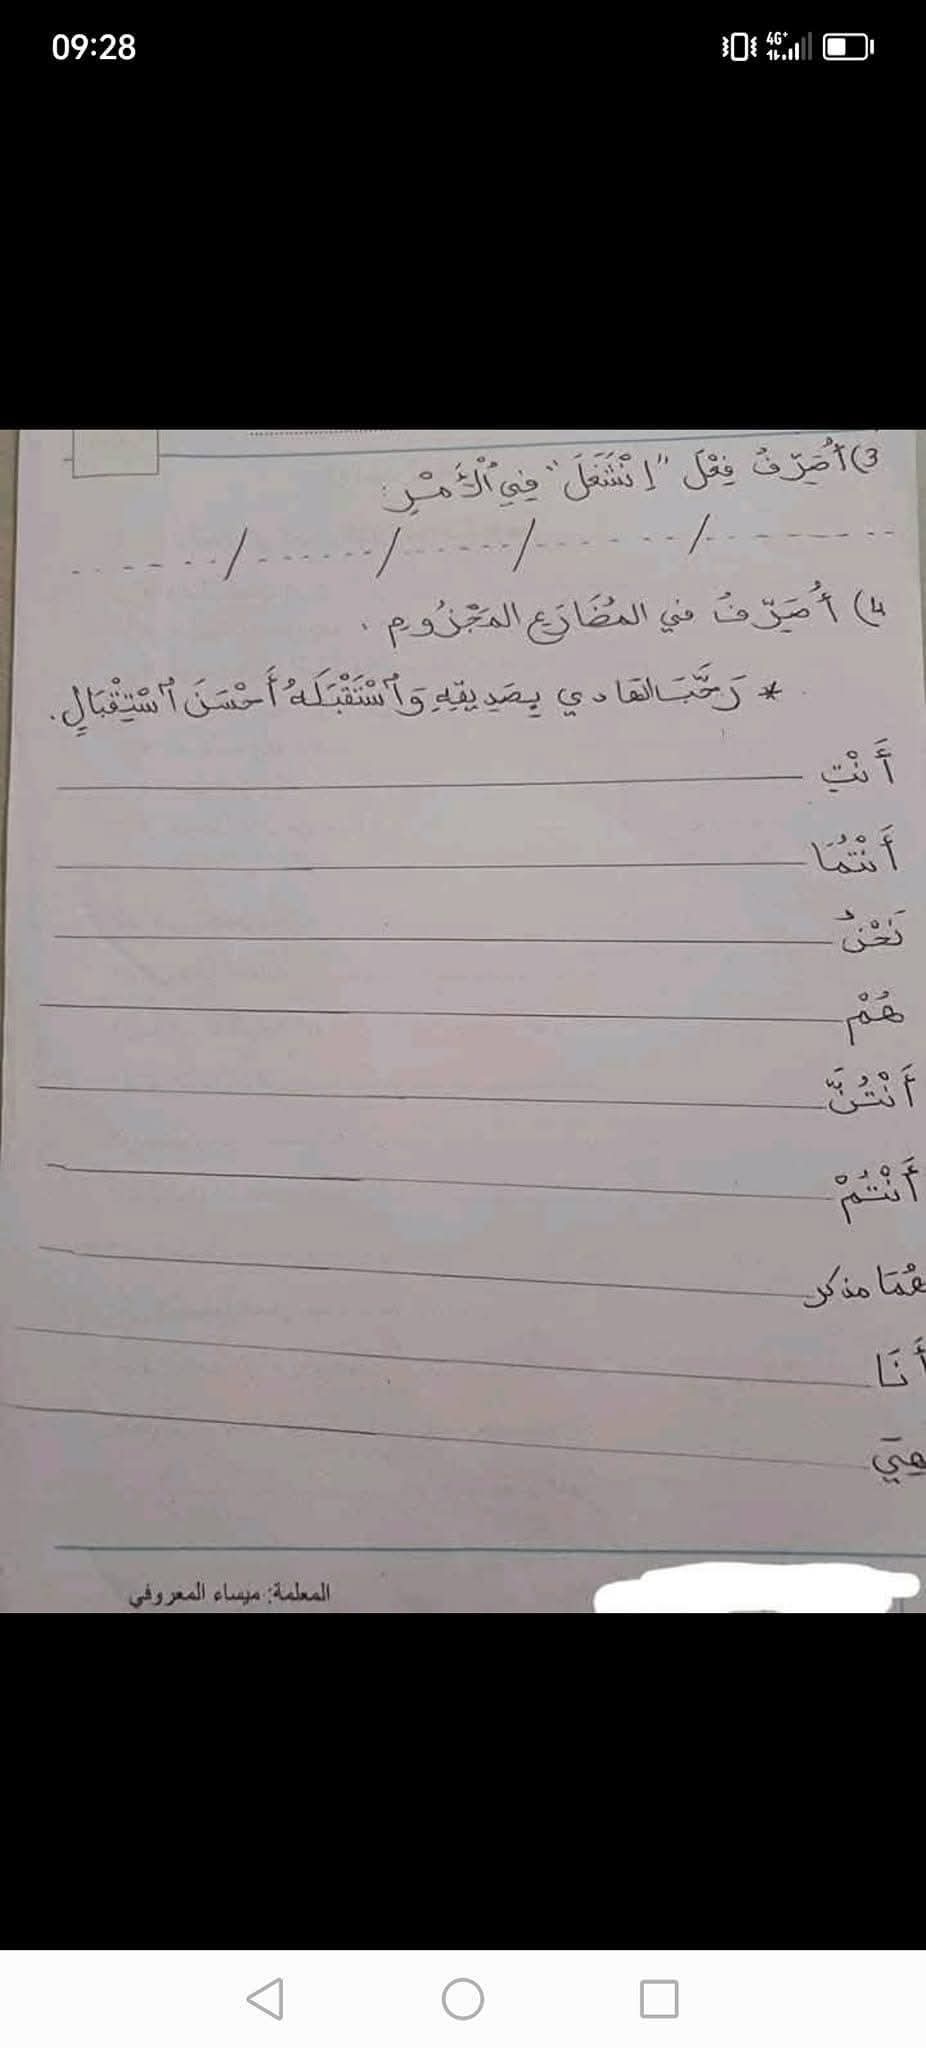 09:28
4G+
3) أُصَرِّفُ فِعْلَ "اِنْشَغَلَ" فِي ٱلْأَمْرِ:
....../....../....../....../......
4) أُصَرِّفُ في المُضَارِعِ المَجْزُومِ .
* رَحَّبَ الهَادي بِصَدِيقِهِ وَٱسْتَقْبَلَهُ أَحْسَنَ ٱسْتِقْبَالٍ.
أَنْتِ
أَنْتُمَا
نَحْنُ
هُمْ
أَنْتُنَّ
أَنْتُمْ
هُمَا مذكر
أَنَا
هِيَ
المعلمة: ميساء المعروفي